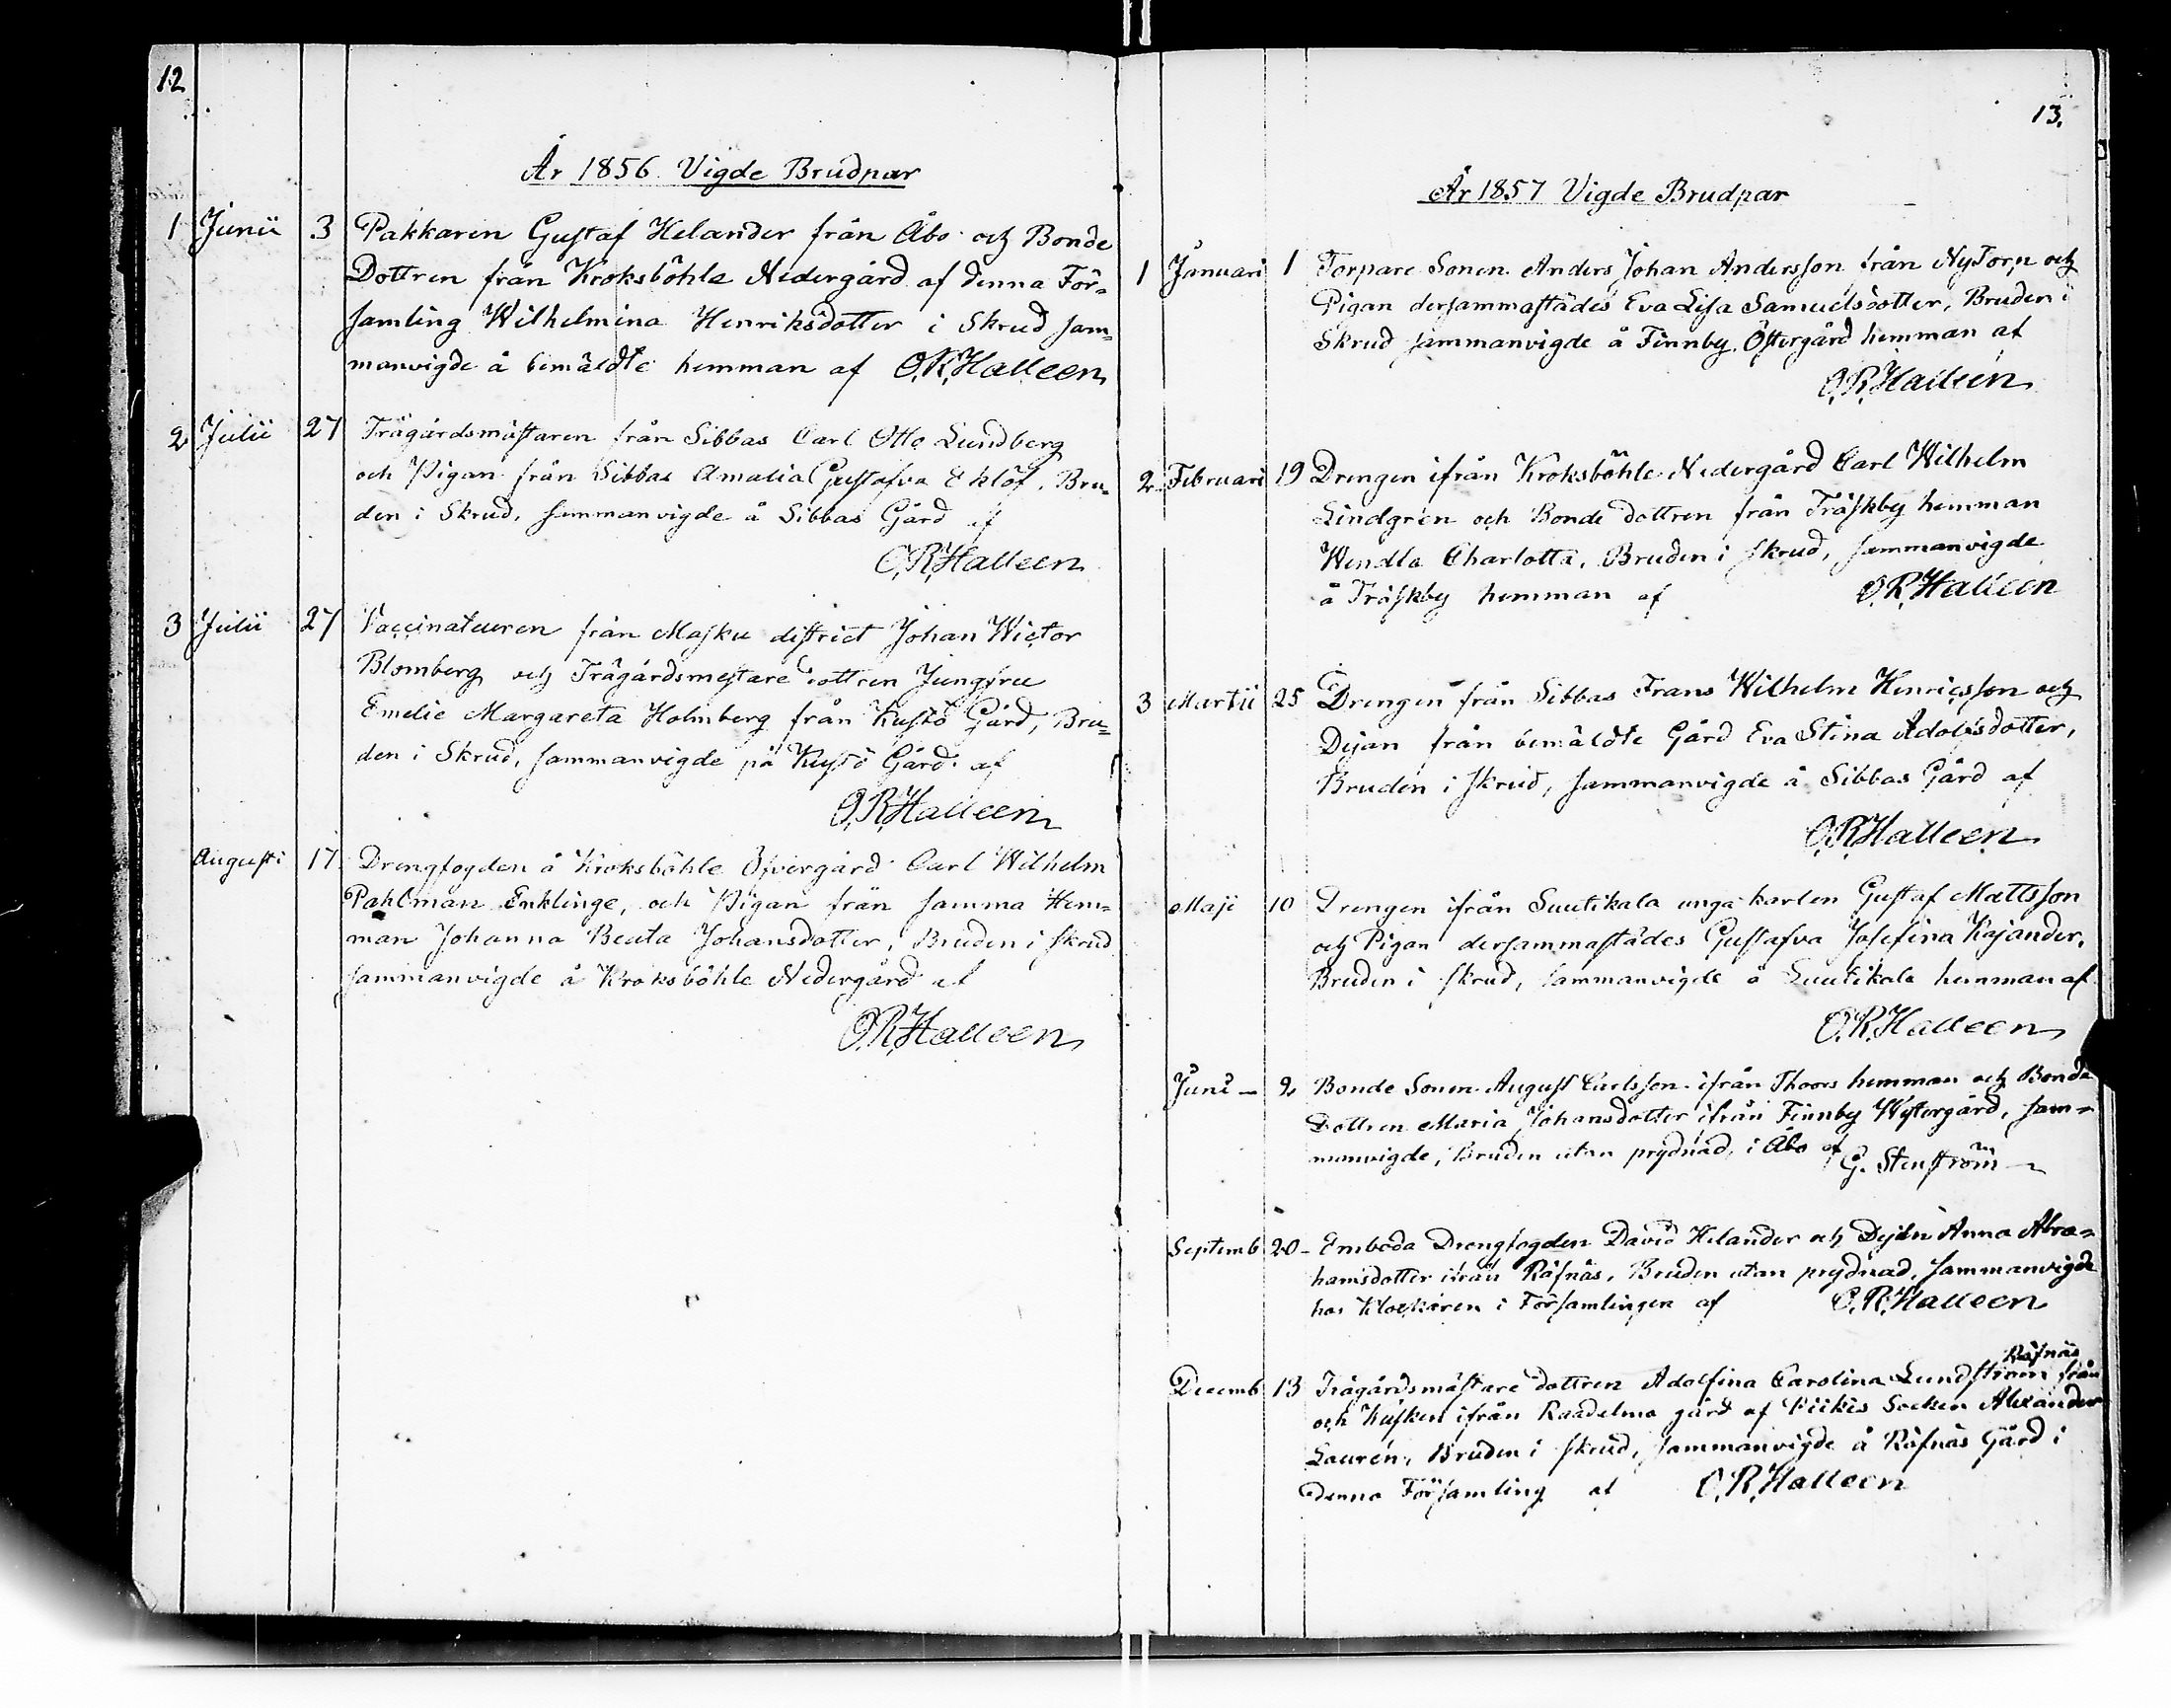 12
År 1856. Vigde Brudpar
1 Junii 3 Pakkaren Gustaf Helander från Åbo och Bonde
Dottren från Kroksböhle Nedergård af denna För=
samling Wilhelmina Henriksdotter i Skrud sam=
manvigde å bemäldte hemman af O.R.Halleen
2 Julii 27 Trägårdsmästaren från Sibbas Carl Otto Lundberg
och Pigan från Sibbas Amalia Gustafva Eklöf. Bru=
den i Skrud, sammanvigde å Sibbas Gård af
O.R.Halleen
3 Julii 27 Vaccinateuren från Masku district Johan Wictor
Blomberg och Trägårdsmestare dottren Jungfru
Emelie Margareta Holmberg från Kustö Gård, Bru=
den i Skrud, sammanvigde på Kustö Gård af
O.R.Halleen
Augusti 17 Drengfogden å Kroksböhle Öfvergård Carl Wilhelm
Pahlman Enklinge, och Pigan från samma Hem=
man Johanna Beata Johansdotter, Bruden i skrud
sammanvigde å Kroksböhle Nedergård af
O.R.Halleen
13.
År 1857 Vigde Brudpar
1 Januari 1 Torpare Sonen Anders Johan Andersson från NyTorp och
Pigan dersammastädes Eva Lisa Samuelsdotter, Bruden i
Skrud sammanvigde å Finnby Östergård hemman af
O.R.Halleen
2 Februari 19 Drengen ifrån Kroksböhle Nedergård Carl Wilhelm
Lindgren och Bonde dottren från Träskby hemman
Wendla Charlotta, Bruden i skrud, sammanvigde
å Träskby hemman af O.R.Halleen
3 Martii 25 Drengen från Sibbas Frans Wilhelm Henricsson och
Dejan från bemäldte Gård Eva Stina Adolfsdotter,
Bruden i skrud, sammanvigde å Sibbas Gård af
O.R.Halleen
Maji 10 Drengen ifrån Suutikala unga karlen Gustaf Mattsson
och Pigan dersammastädes Gustafva Josefina Kajander,
Bruden i skrud, sammanvigde å Suutikala hemman af
O.R.Halleen
Juni - 2 Bonde Sonen August Carlsson ifrån Thoors hemman och Bonde
Dottren Maria Johansdotter ifrån Finnby Westergård, sam=
manvigde, Bruden utan prydnad, i Åbo af G. Stenström
Septemb 20- Emboda Drengfogden David Helander och Dejan Anna Abra=
hamsdotter ifrån Räfnäs, Bruden utan prydnad, sammanvigde
hos Klockaren i Församlingen af O.R.Halleen
Räfnäs
Decemb 13 Trägårdsmästare dottren Adolfina Carolina Lundström från
och Kusken ifrån Raadelma gård af Piikis Socken Alexander
Laurén, Bruden i skrud, sammanvigde å Räfnäs Gård i
denna Församling af O.R.Halleen